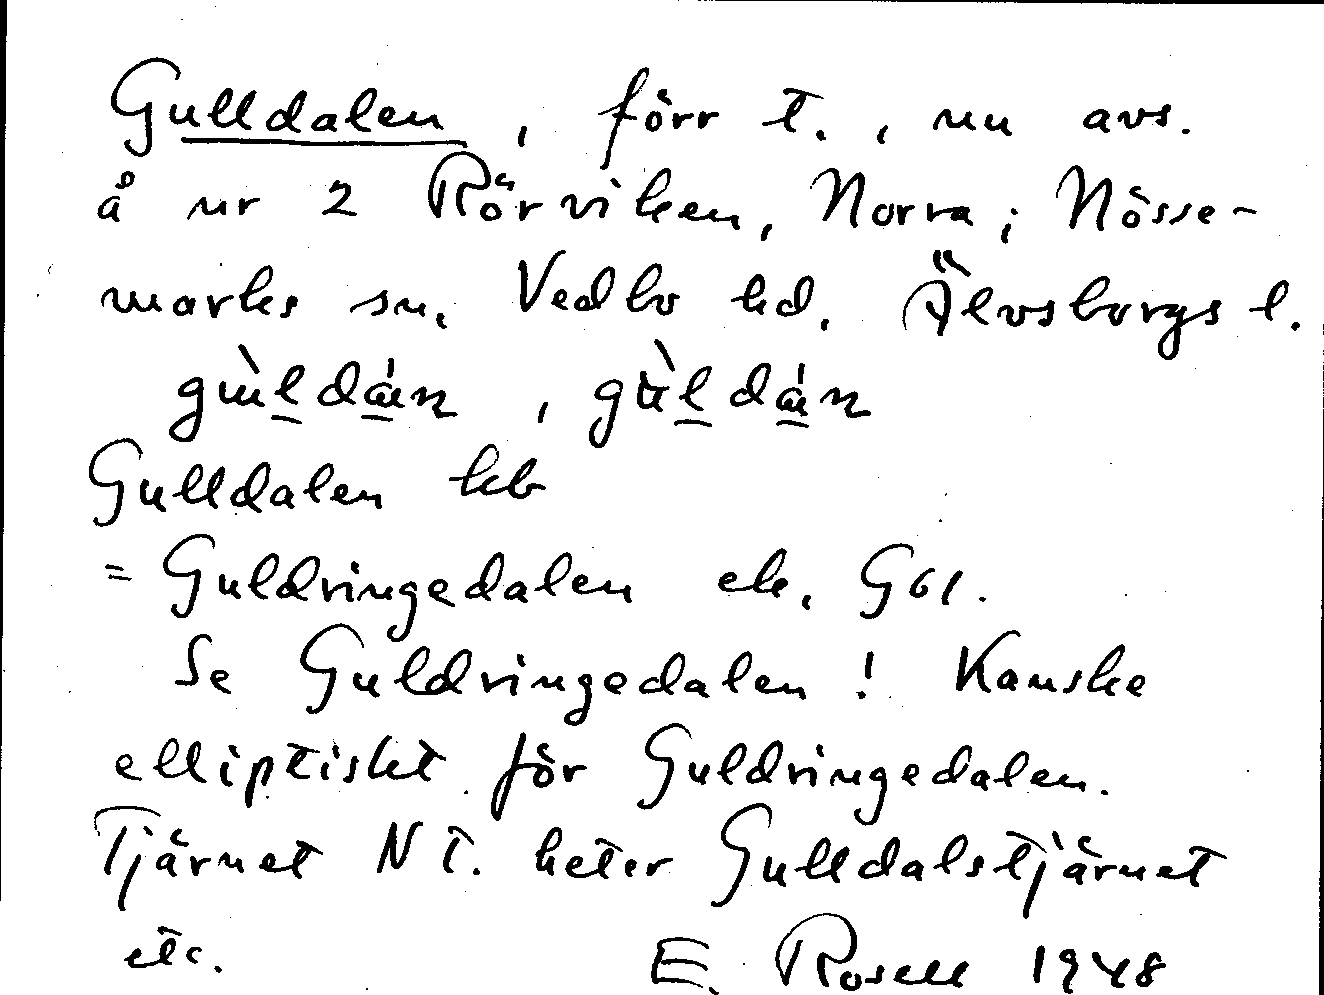 Gulldalen, förr t., nu avs.
å nr 2 Rörviken, Norra; Nösse-
marks sn, Vedbo hd. Älvsborgs l.
Gulldalen
= Guldringedalen ek. G61.
Se Guldringedalen! Kanske
elliptiskt för Guldringedalen.
Tjärnet NT. heter Gulldalstjärnet
etc. E. Rosell 1948